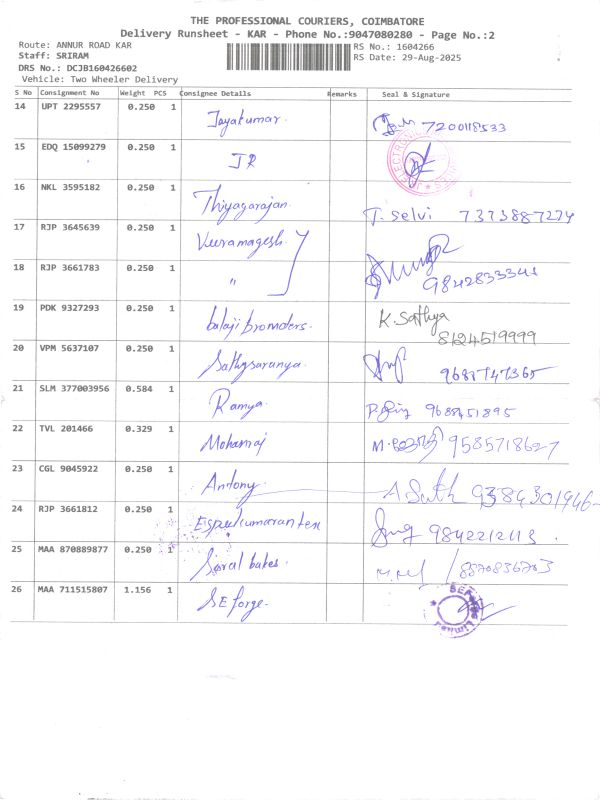 THE PROFESSIONAL COURIERS, COIMBATORE
Delivery Runsheet - KAR - Phone No.:9047080280 - Page No.:2
Route: ANNUR ROAD KAR RS No.: 1604266
Staff: SRIRAM RS Date: 29-Aug-2025
DRS No.: DCJB160426602
Vehicle: Two Wheeler Delivery
S No Consignment No Weight PCS Consignee Details Remarks Seal & Signature
14 UPT 2295557 0.250 1 Jayakumar. 7200118533
15 EDQ 15099279 0.250 1 JR
16 NKL 3595182 0.250 1 Thiyagarajan. T. Selvi 7373887274
17 RJP 3645639 0.250 1 Veeramagesh
18 RJP 3661783 0.250 1 " 9842833341
19 PDK 9327293 0.250 1 balaji bromoters. K. Sathya 8124519999
20 VPM 5637107 0.250 1 Sathysaranya. 9687747365
21 SLM 377003956 0.584 1 Ramya. 9688451895
22 TVL 201466 0.329 1 Mohanraj M. 9585718627
23 CGL 9045922 0.250 1 Antony A Sath 9384301946
24 RJP 3661812 0.250 1 9842212113
25 MAA 870889877 0.250 1 bakes.
26 MAA 711515807 1.156 1 SE forge.